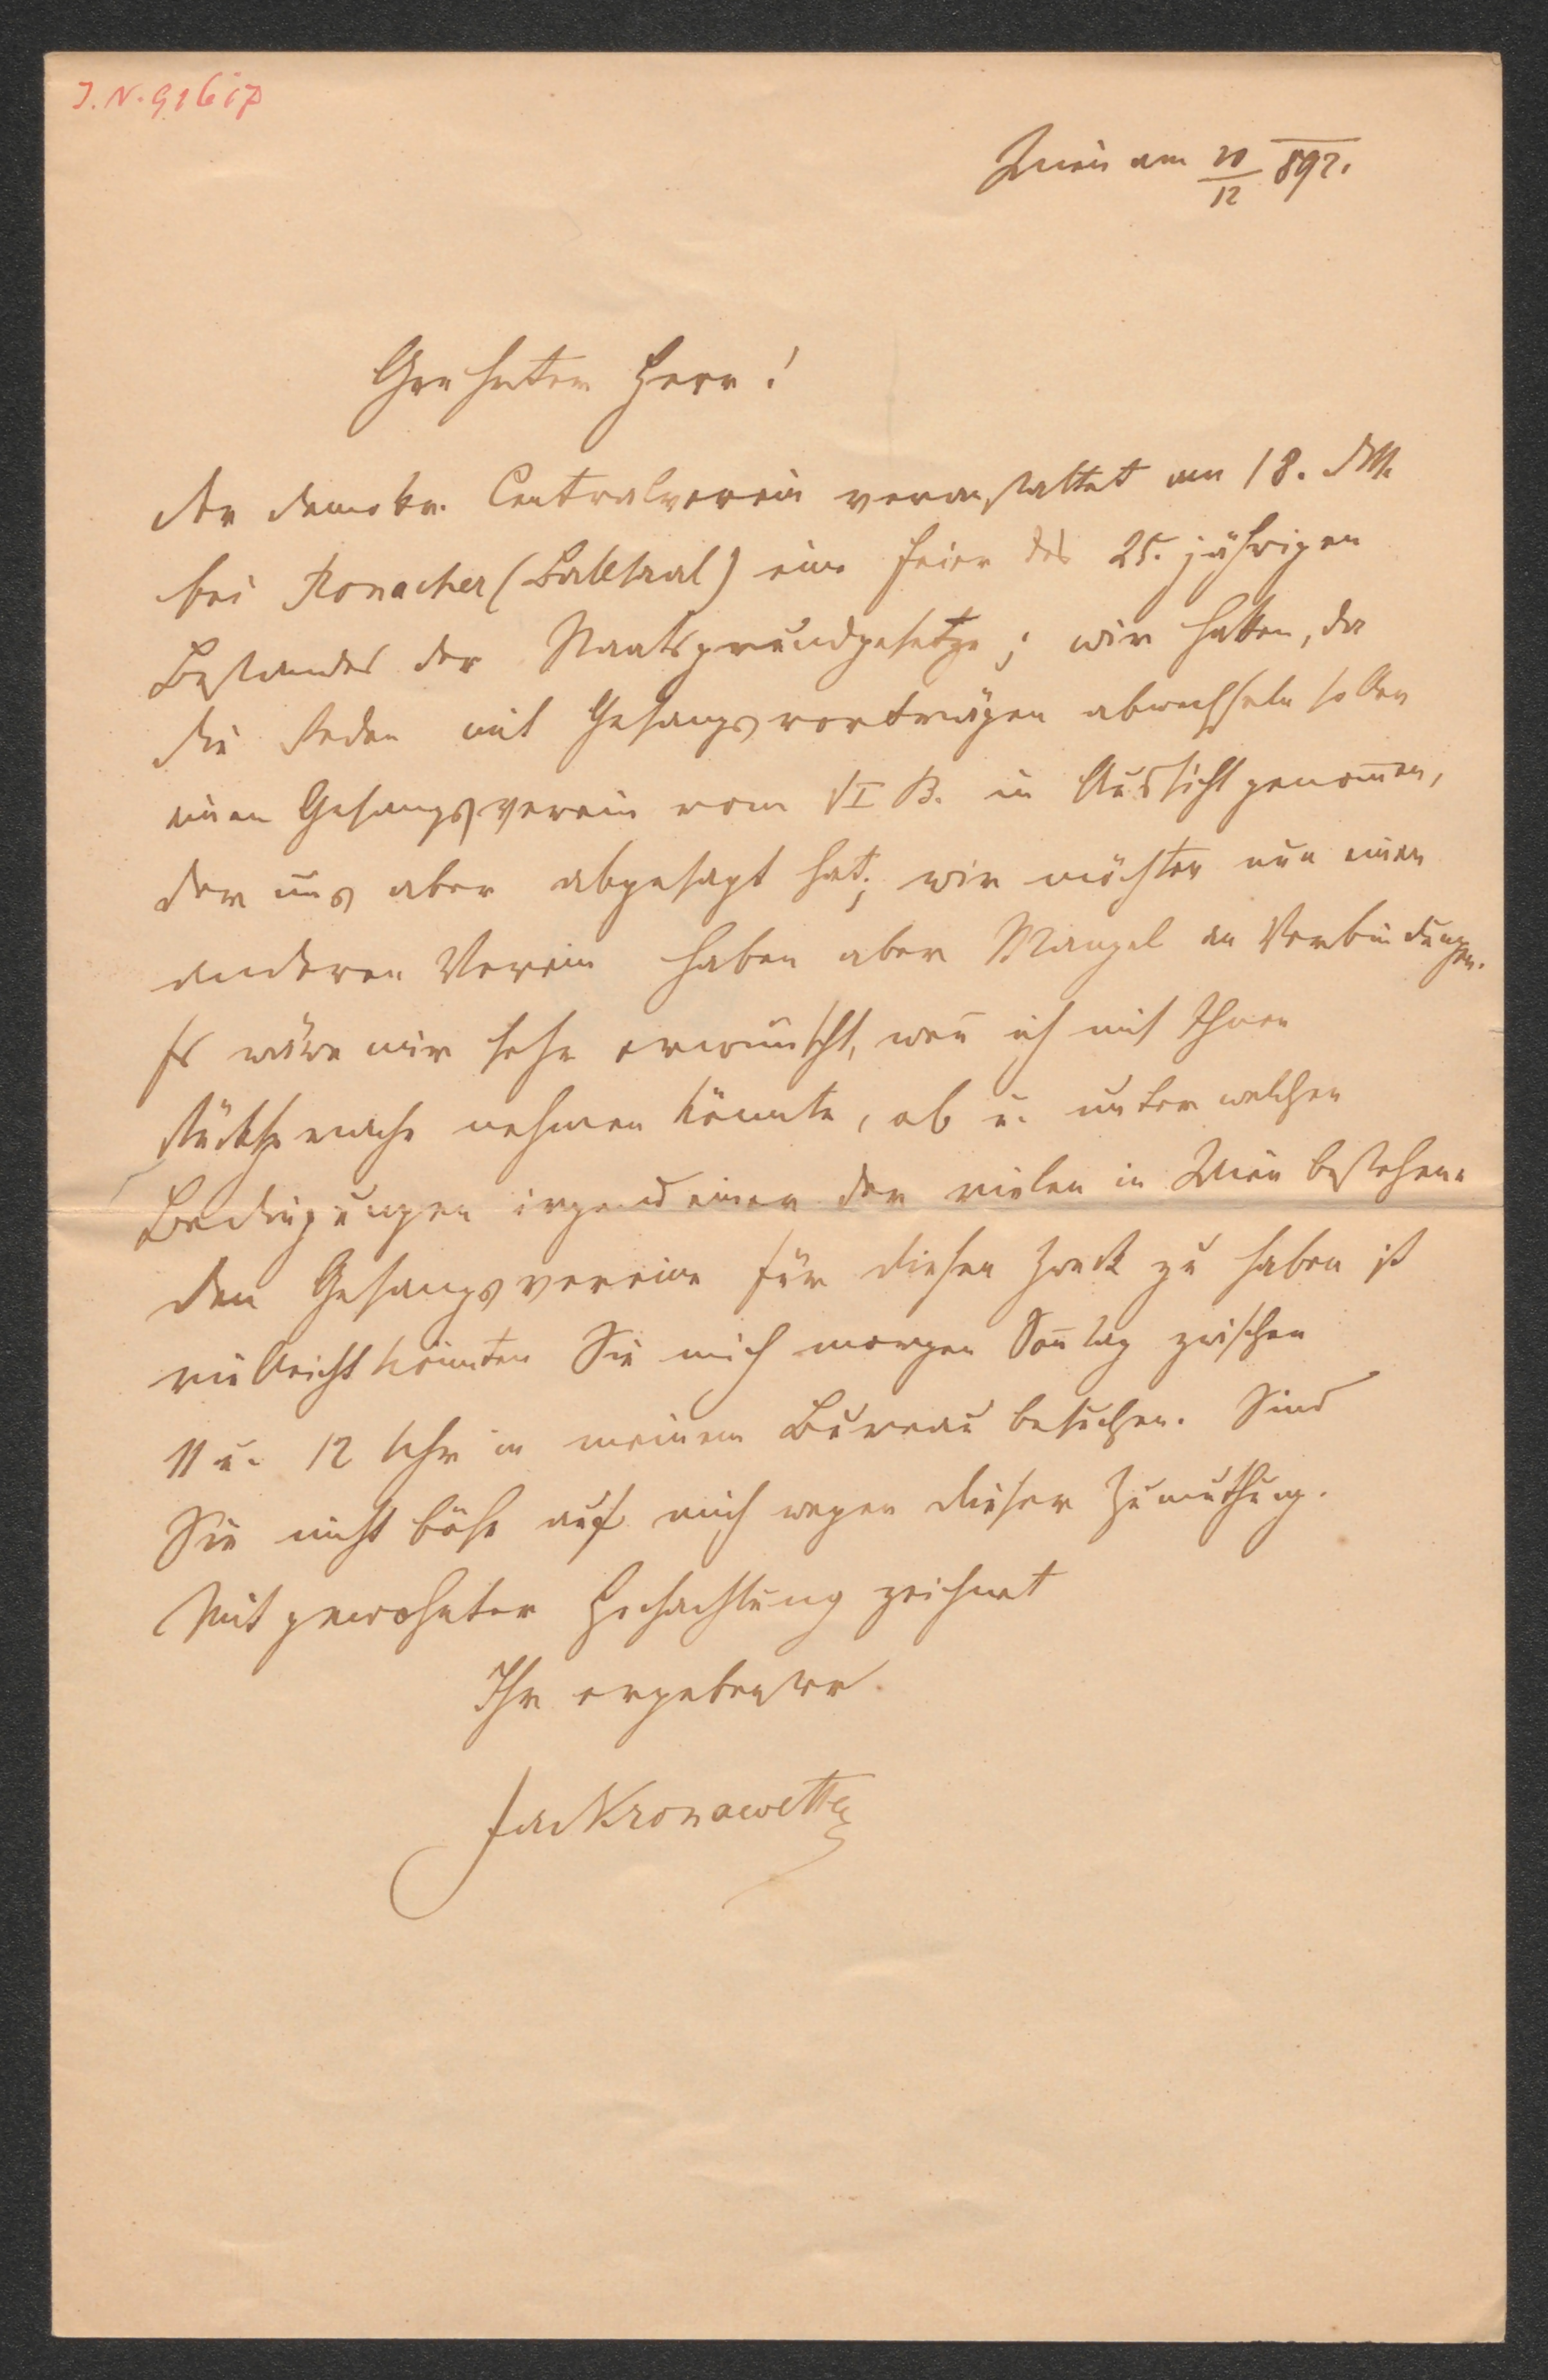 J. N. 91617
Wien am 10/12 892.
Geehrter Herr!
Der demokr. Centralverein veranstaltet am 18. d M.
bei Ronacher (Ballsaal) eine Feier des 25. jährigen
Bestandes der Staatsgrundgesetze; wir hatten, da
die Reden mit Gesangsvorträgen abwechseln sollen
einen Gesangsverein vom VI B. in Aussicht genom̄en,
der uns aber abgesagt hat; wir möchten nun einen
anderen Verein haben aber Mangel an Verbindungen.
Es wäre mir sehr erwünscht, wen̄ ich mit Ihnen
Rücksprache nehmen könnte, ob u. unter welchen
Bedingungen irgend einer der vielen in Wien bestehen-
den Gesangsvereine für diesen Zweck zu haben ist
vielleicht könnten Sie mich morgen Son̄tag zwischen
11 u. 12 Uhr in meinem Bureau besuchen. Sind
Sie nicht böse auf mich wegen dieser Zumuthung.
Mit gewohnter Hochachtung zeichnet
Ihr ergebenster
Kronawetter